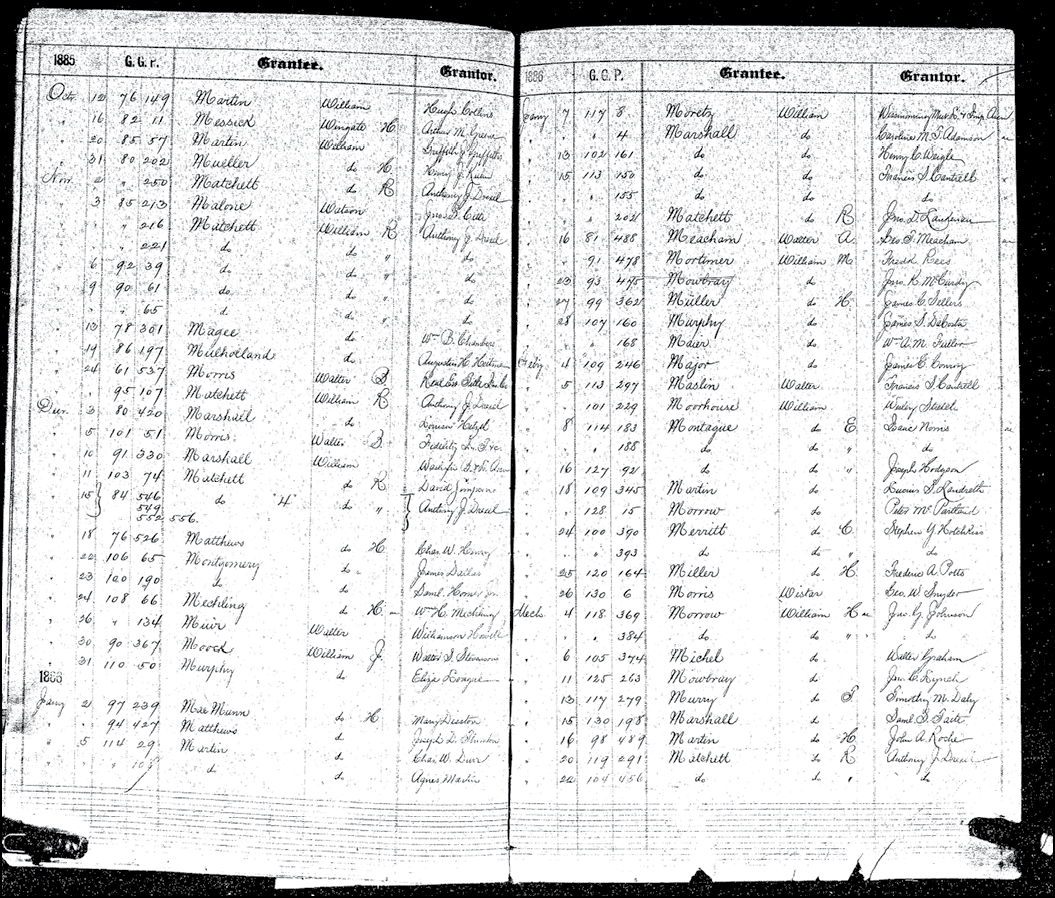 1885 G. G. P. Grantee. Grantor.
Oct. 12 76 149 Martin William Hugh Collins
" 16 82 11 Messick Wingate H Arthur M.
" 20 85 57 Martin William Griffith J. Griffiths
" 31 80 202 Mueller do H. Henry J.
Nov. 2 " 250 Matchett do R Anthony J. Drexel
" 3 85 213 Malone Watson Jno.
" " 216 Matchett William R Anthony J Drexel
" " 221 do do " do
" 6 92 39 do do " do
" 9 90 61 do. do " do
" " 65 do do " do
" 13 78 301 Magee do Wm B. Chambers
" 19 86 197 Mulholland do. Augustin H.
" 24 61 537 Morris Walter S Real Es. Title
" " 95 107 Matchett William R Anthony J Drexel
Decr. 3 80 420 Marshall do
" 5 101 51 Morris. Walter S. Fidelity
" 10 91 330 Marshall William
" 11 103 74 Matchett do R. David
" 15 84 546 do "4" do " Anthony J. Drexel
549
552 556.
" 18 76 526 Matthews do H Chas. W. Henry
" 22 106 65 Montgomery do James Dallas
" 23 100 190 do do Saml. Homer Jr.
" 24 108 66 Mechling do H Wm H. Mechling
" 26 " 134 Muir Walter Williamson
" 30 90 367 Moock William J. Walter S. Stevenson
" 31 110 50 Murphy do Eliza
1886
Jany 2 97 239 MacMunn do H Mary Disston
" 94 427 Matthews do Joseph D. Thornton
" 5 114 29 Martin do Chas. W. Durr
" " 108 do do Agnes Martin
1886 G. G. P. Grantee. Grantor.
Jany 7 114 8 Moretz William
" " 4 Marshall do Caroline M. S. Adamson
" 13 102 161 do do Henry C. Weigle
" 15 113 150 do do Francis S. Cantrell
" " 155 do do do
" " 202 Matchett do R Jno. D. Lankenau
" 16 81 488 Meacham Walter A. Geo. F. Meacham
" " 91 478 Mortimer William M Fredk Rees
" 23 93 445 Mowbray do Jno. K. McCurdy
" 27 99 362 Müller do H. James C. Sellers
" 28 107 160 Murphy do James S. DaCosta
" " 168 Maier do. Wm. A. M. Fuller
Feby 4 109 246 Major do James C. Conroy
" 5 113 297 Maslin Walter Francis S. Cantrell
" 101 229 Moorhouse William
" 8 114 183 Montague do E. Isaac Norris
" " 188 do do " do
" 16 127 92 do do " Joseph Hodgson
" 18 109 345 Martin do Lucius S. Landreth
" " 128 15 Morrow do Peter McPartland
" 24 100 390 Merritt do C. Stephen Y. Hotchkiss
" " 393 do do " do
" 25 120 164 Miller do H. Frederic A. Potts
" 26 130 6 Morris Wistar Geo. W. Snyder
Mech. 4 118 369 Morrow William H Jno. G. Johnson
" " 384 do do " do
" 6 105 374 Michel do Walter Graham
" 11 125 263 Mowbray do Jno. C. Lynch
" 13 117 279 Murry do S Timothy M. Daly
" 15 130 198 Marshall do Saml. G.
" 16 98 489 Martin do H John A. Roche
" 20 119 291 Matchett do R Anthony J. Drexel
" 22 104 456 do do " do